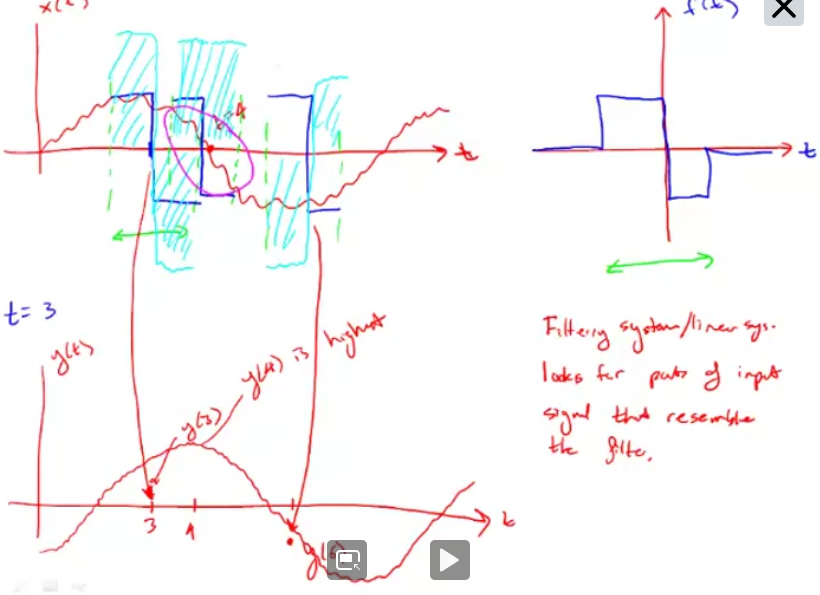 x(t)
f(t)
t=4
t
t
t = 3
y(t)
y(4) is highest
y(3)
Filtering system/linear sys.
looks for parts of input
signal that resemble
the filter.
3
4
t
y(6)